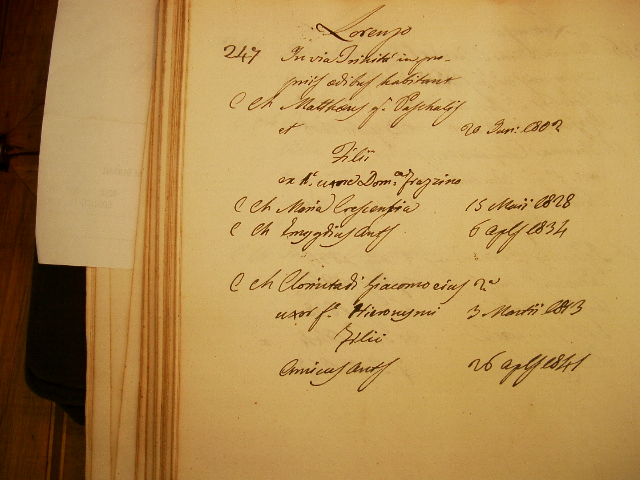 Lorenzo
247 In via Trinità in pro-
priis ædibus habitant
C Ch Matthæus q.m Paschalis
et 20 Juni 1802
Filii
ex 1.a uxore Dom.ca Frazzino
C Ch Maria Crescentia 15 Maii 1828
C Ch Emygdius Ant.s 6 Aplis 1834
C Ch Clorinta di Giacomo eius 2.a
uxor f.a Hieronymi 3 Martii 1813
Filii
Amicus Ant.s 26 Aplis 1841